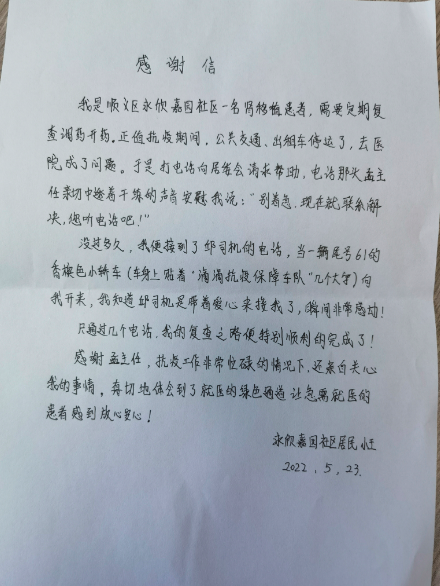 感谢信
我是顺义区永欣嘉园社区一名肾移植患者，需要定期复
查调药开药。正值抗疫期间，公共交通、出租车停运了，去医
院成了问题。于是打电话向居委会请求帮助，电话那头孟主
任亲切中透着干练的声音安慰我说：“别着急，现在就联系解
决，您听电话吧！”
没过多久，我便接到了邱司机的电话，当一辆尾号61的
香槟色小轿车（车身上贴着“滴滴抗疫保障车队”几个大字）向
我开来，我知道邱司机是带着爱心来接我了，瞬间非常感动！
只通过几个电话，我的复查之路便特别顺利的完成了！
感谢孟主任，抗疫工作非常忙碌的情况下，还亲自关心
我的事情，真切地体会到了就医的绿色通道让急需就医的
患者感到放心安心！
永欣嘉园社区居民 小王
2022.5.23.